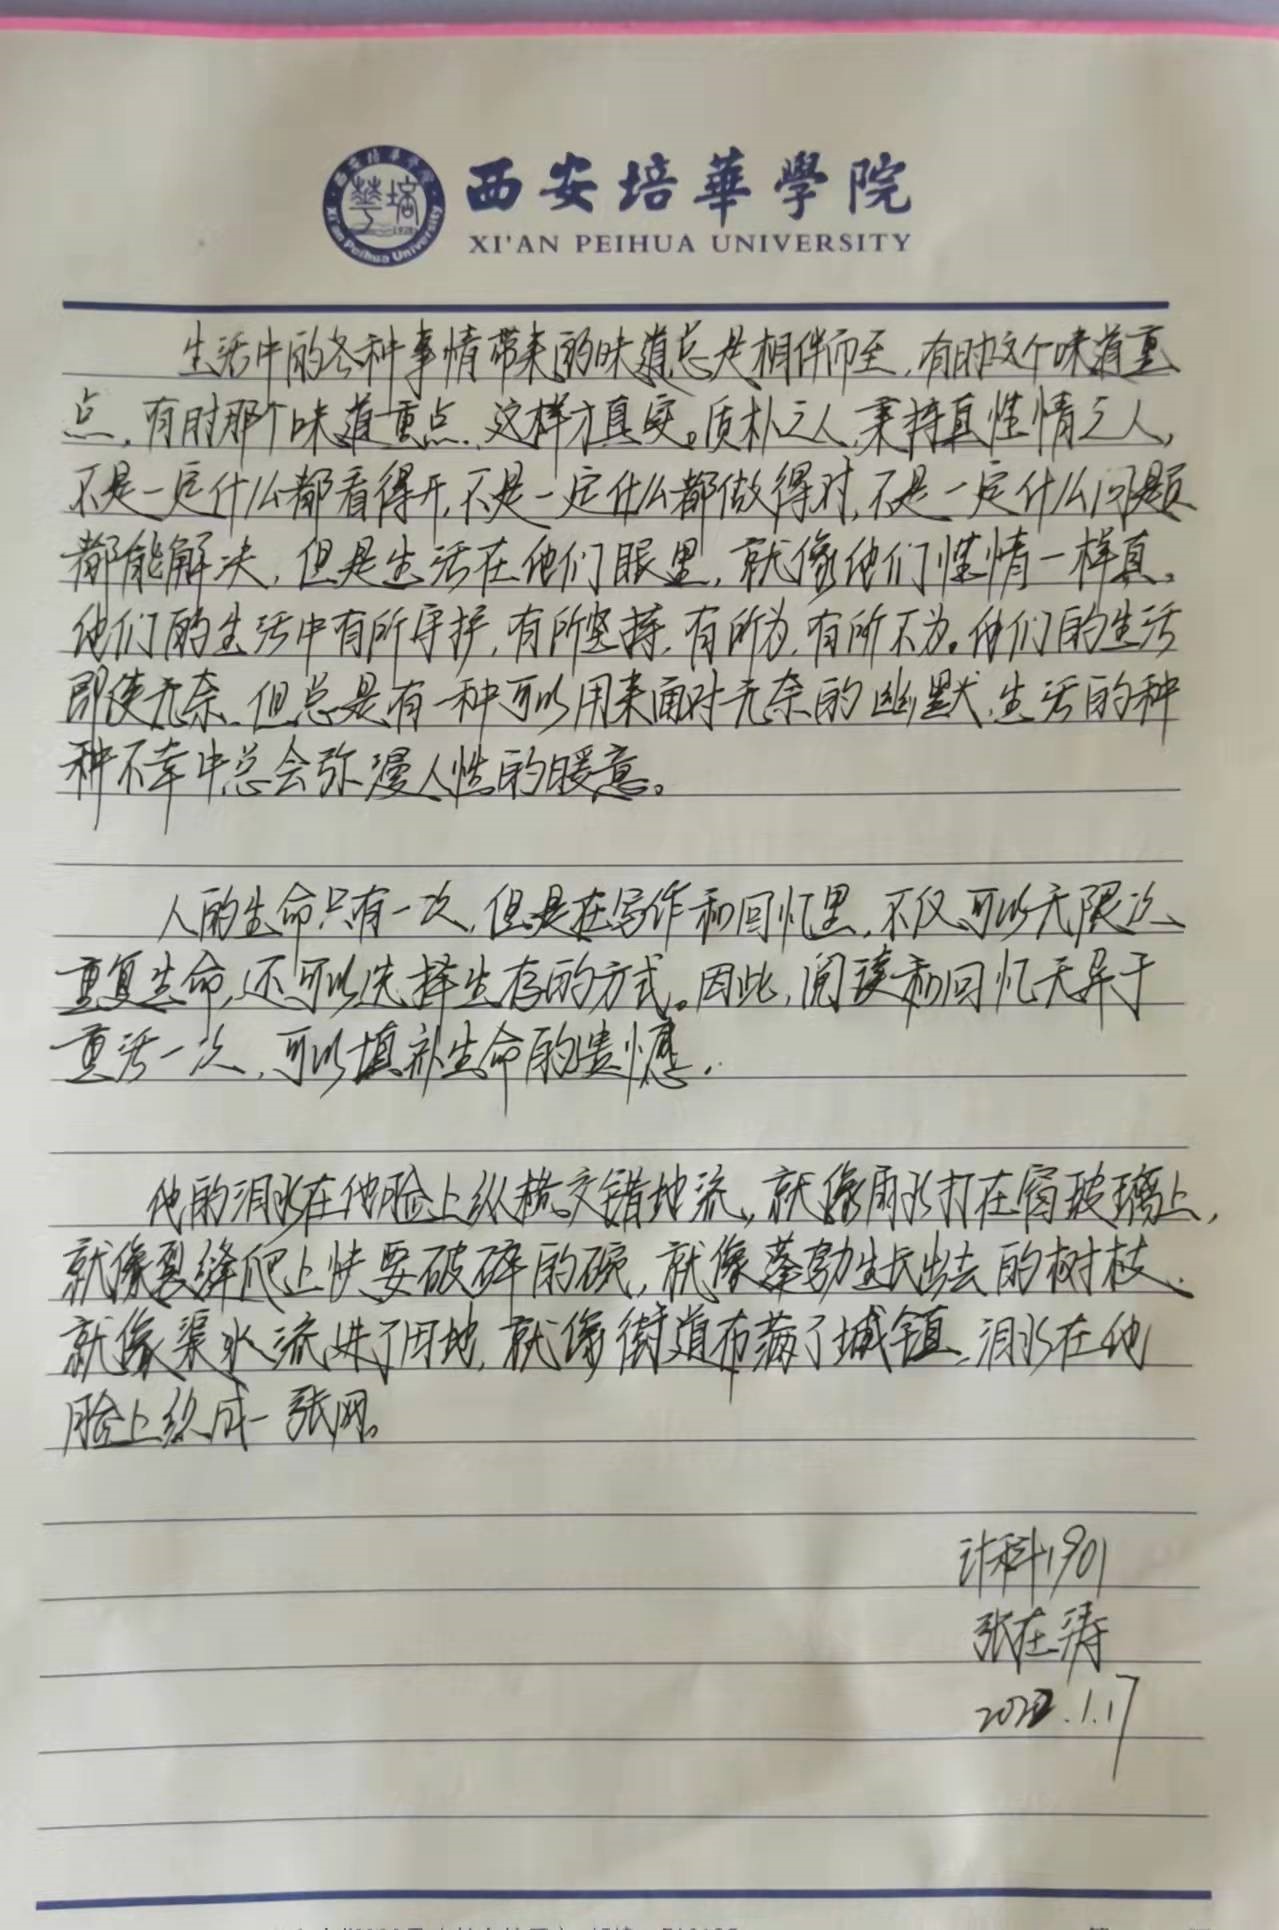 西安培華學院
XI'AN PEIHUA UNIVERSITY
生活中的各种事情带来的味道总是相伴而至，有时这个味道重
点，有时那个味道重点，这样才真实。质朴之人，秉持真性情之人，
不是一定什么都看得开，不是一定什么都做得对，不是一定什么问题
都能解决，但是生活在他们眼里，就像他们性情一样真。
他们的生活中有所守护，有所坚持，有所为，有所不为。他们的生活
即使无奈，但总是有一种可以用来面对无奈的幽默，生活的种
种不幸中总会弥漫人性的暖意。
人的生命只有一次，但是在写作和回忆里，不仅可以无限次
重复生命，还可以选择生存的方式。因此，阅读和回忆无异于
重活一次，可以填补生命的遗憾.
他的泪水在他脸上纵横交错地流，就像雨水打在窗玻璃上，
就像裂缝爬上快要破碎的碗，就像蓬勃生长出去的树枝，
就像渠水流进了田地，就像街道布满了城镇，泪水在他
脸上织成一张网。
计科1901
张在涛
2022.1.17